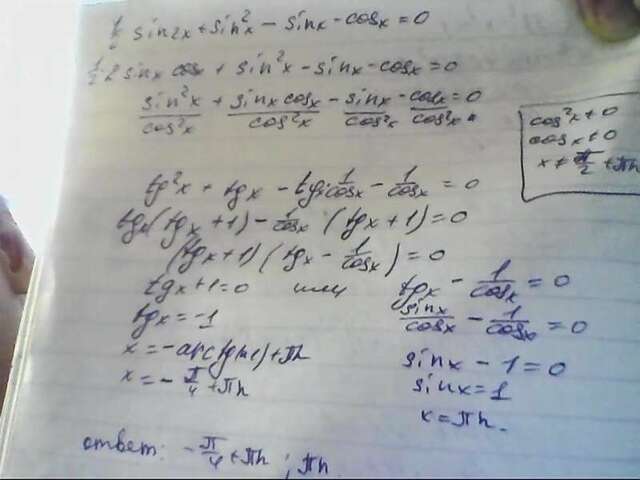 ½ sin2x + sin²x - sinx - cosx = 0
½·2 sinx cosx + sin²x - sinx - cosx = 0
sin²x/cos²x + sinx cosx/cos²x - sinx/cos²x - cosx/cos²x = 0
cos²x ≠ 0
cosx ≠ 0
x ≠ π/2 + πn
tg²x + tgx - tgx 1/cosx - 1/cosx = 0
tgx(tgx + 1) - 1/cosx (tgx + 1) = 0
(tgx + 1)(tgx - 1/cosx) = 0
tgx + 1 = 0 или tgx - 1/cosx = 0
tgx = -1
sinx/cosx - 1/cosx = 0
x = -arctg(1) + πn
sinx - 1 = 0
x = -π/4 + πn
sinx = 1
x = πn.
ответ: -π/4 + πn ; πn